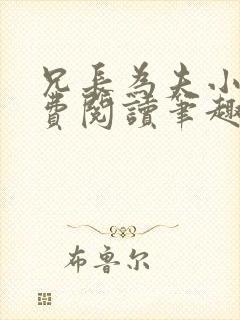 兄長為夫小
費閱讀筆趣
布鲁尔